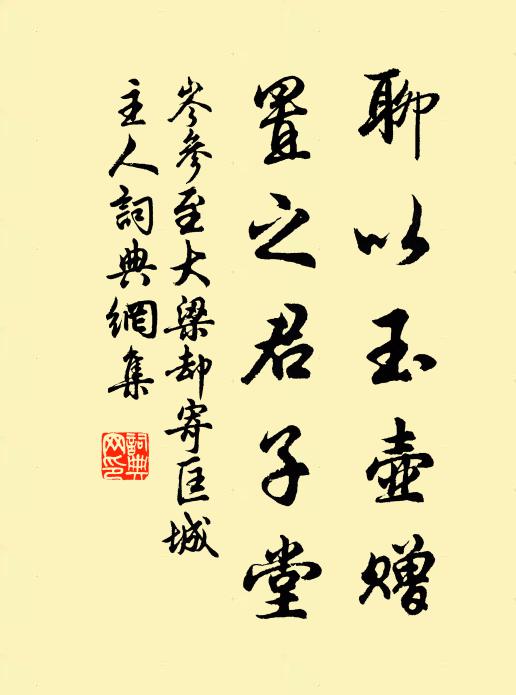 聊以玉壺贈
置之君子堂
岑參至大梁却寄匡城
主人詞典網集
詞典
网印